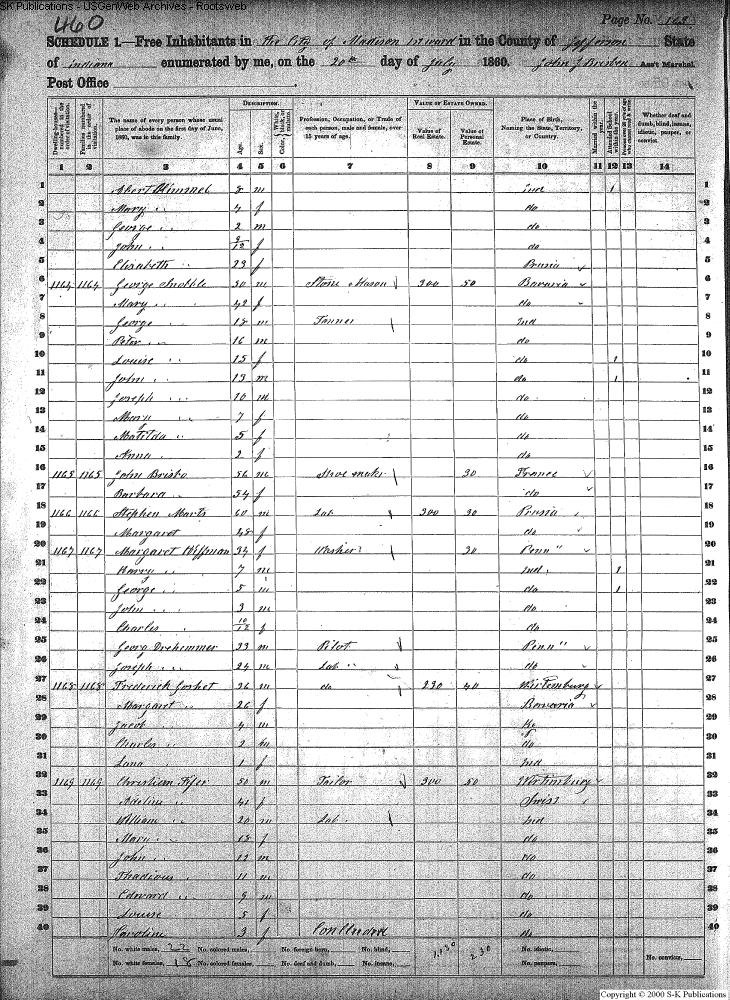 SK Publications - USGenWeb Archives - Rootsweb
460
Page No. 163
SCHEDULE 1.—Free Inhabitants in The City of Madison 1st ward in the County of Jefferson State
of Indiana enumerated by me, on the 20th day of July 1860. John J Brisben Ass't Marshal.
Post Office
Dwelling-houses numbered in the order of visitation.
Families numbered in the order of visitation.
The name of every person whose usual place of abode on the first day of June, 1860, was in this family.
DESCRIPTION.
Age.
Sex.
Color, White, black, or mulatto.
Profession, Occupation, or Trade of each person, male and female, over 15 years of age.
VALUE OF ESTATE OWNED.
Value of Real Estate.
Value of Personal Estate.
Place of Birth, Naming the State, Territory, or Country.
Married within the year.
Attended School within the year.
Whether deaf and dumb, blind, insane, idiotic, pauper, or convict.
1 2 3 4 5 6 7 8 9 10 11 12 13 14
1 Kimmel 8 m Ind 1 1
2 Mary " 4 f do 2
3 George " 2 m do 3
4 John " 9/12 f do 4
5 Elizabeth " 23 f Prusia 5
6 1164 1164 George 50 m Stone Mason 300 50 Bavaria 6
7 Mary " 42 f do 7
8 George " 18 m Tanner Ind 8
9 Peter " 16 m do 9
10 Louise " 15 f do 1 10
11 John " 13 m do 1 11
12 Joseph " 10 m do 12
13 Mary " 7 f do 13
14 Matilda " 5 f do 14
15 Anna " 2 f do 15
16 1165 1165 John Brisko 56 m Shoe maker 30 France 16
17 Barbara " 54 f do 17
18 1166 1166 Stephen Marts 60 m Lab 300 30 Prusia 18
19 Margaret 48 f do 19
20 1167 1167 Margaret 34 f Washer 30 Penn" 20
21 Harry " 7 m Ind 1 21
22 George " 5 m do 1 22
23 John " 3 m do 23
24 Charles " 10/12 f do 24
25 Georg Drehemmer 33 m Pilot Penn" 25
26 Joseph " 24 m Lab " do 26
27 1168 1168 Frederick 36 m do 230 40 Wirtemburg 27
28 Margaret " 26 f Bavaria 28
29 Jacob " 4 m 29
30 Charles " 2 m do 30
31 Lana " 1 f Ind 31
32 1169 1169 Christian Fifer 50 m Tailor 300 50 Wirtimburg 32
33 Adeline " 41 f Swiss 33
34 William " 20 m Lab Ind 34
35 Mary " 18 f do 35
36 John " 12 m do 36
37 Thadious " 11 m do 37
38 Edward " 9 m do 38
39 Louise " 5 f do 39
40 Caroline " 3 f Continued do 40
No. white males, 22 No. colored males, No. foreign born, No. blind, 1,130 230 No. idiotic,
No. white females, 18 No. colored females, No. deaf and dumb, No. insane, No. paupers, No. convicts,
Copyright © 2000 S-K Publications